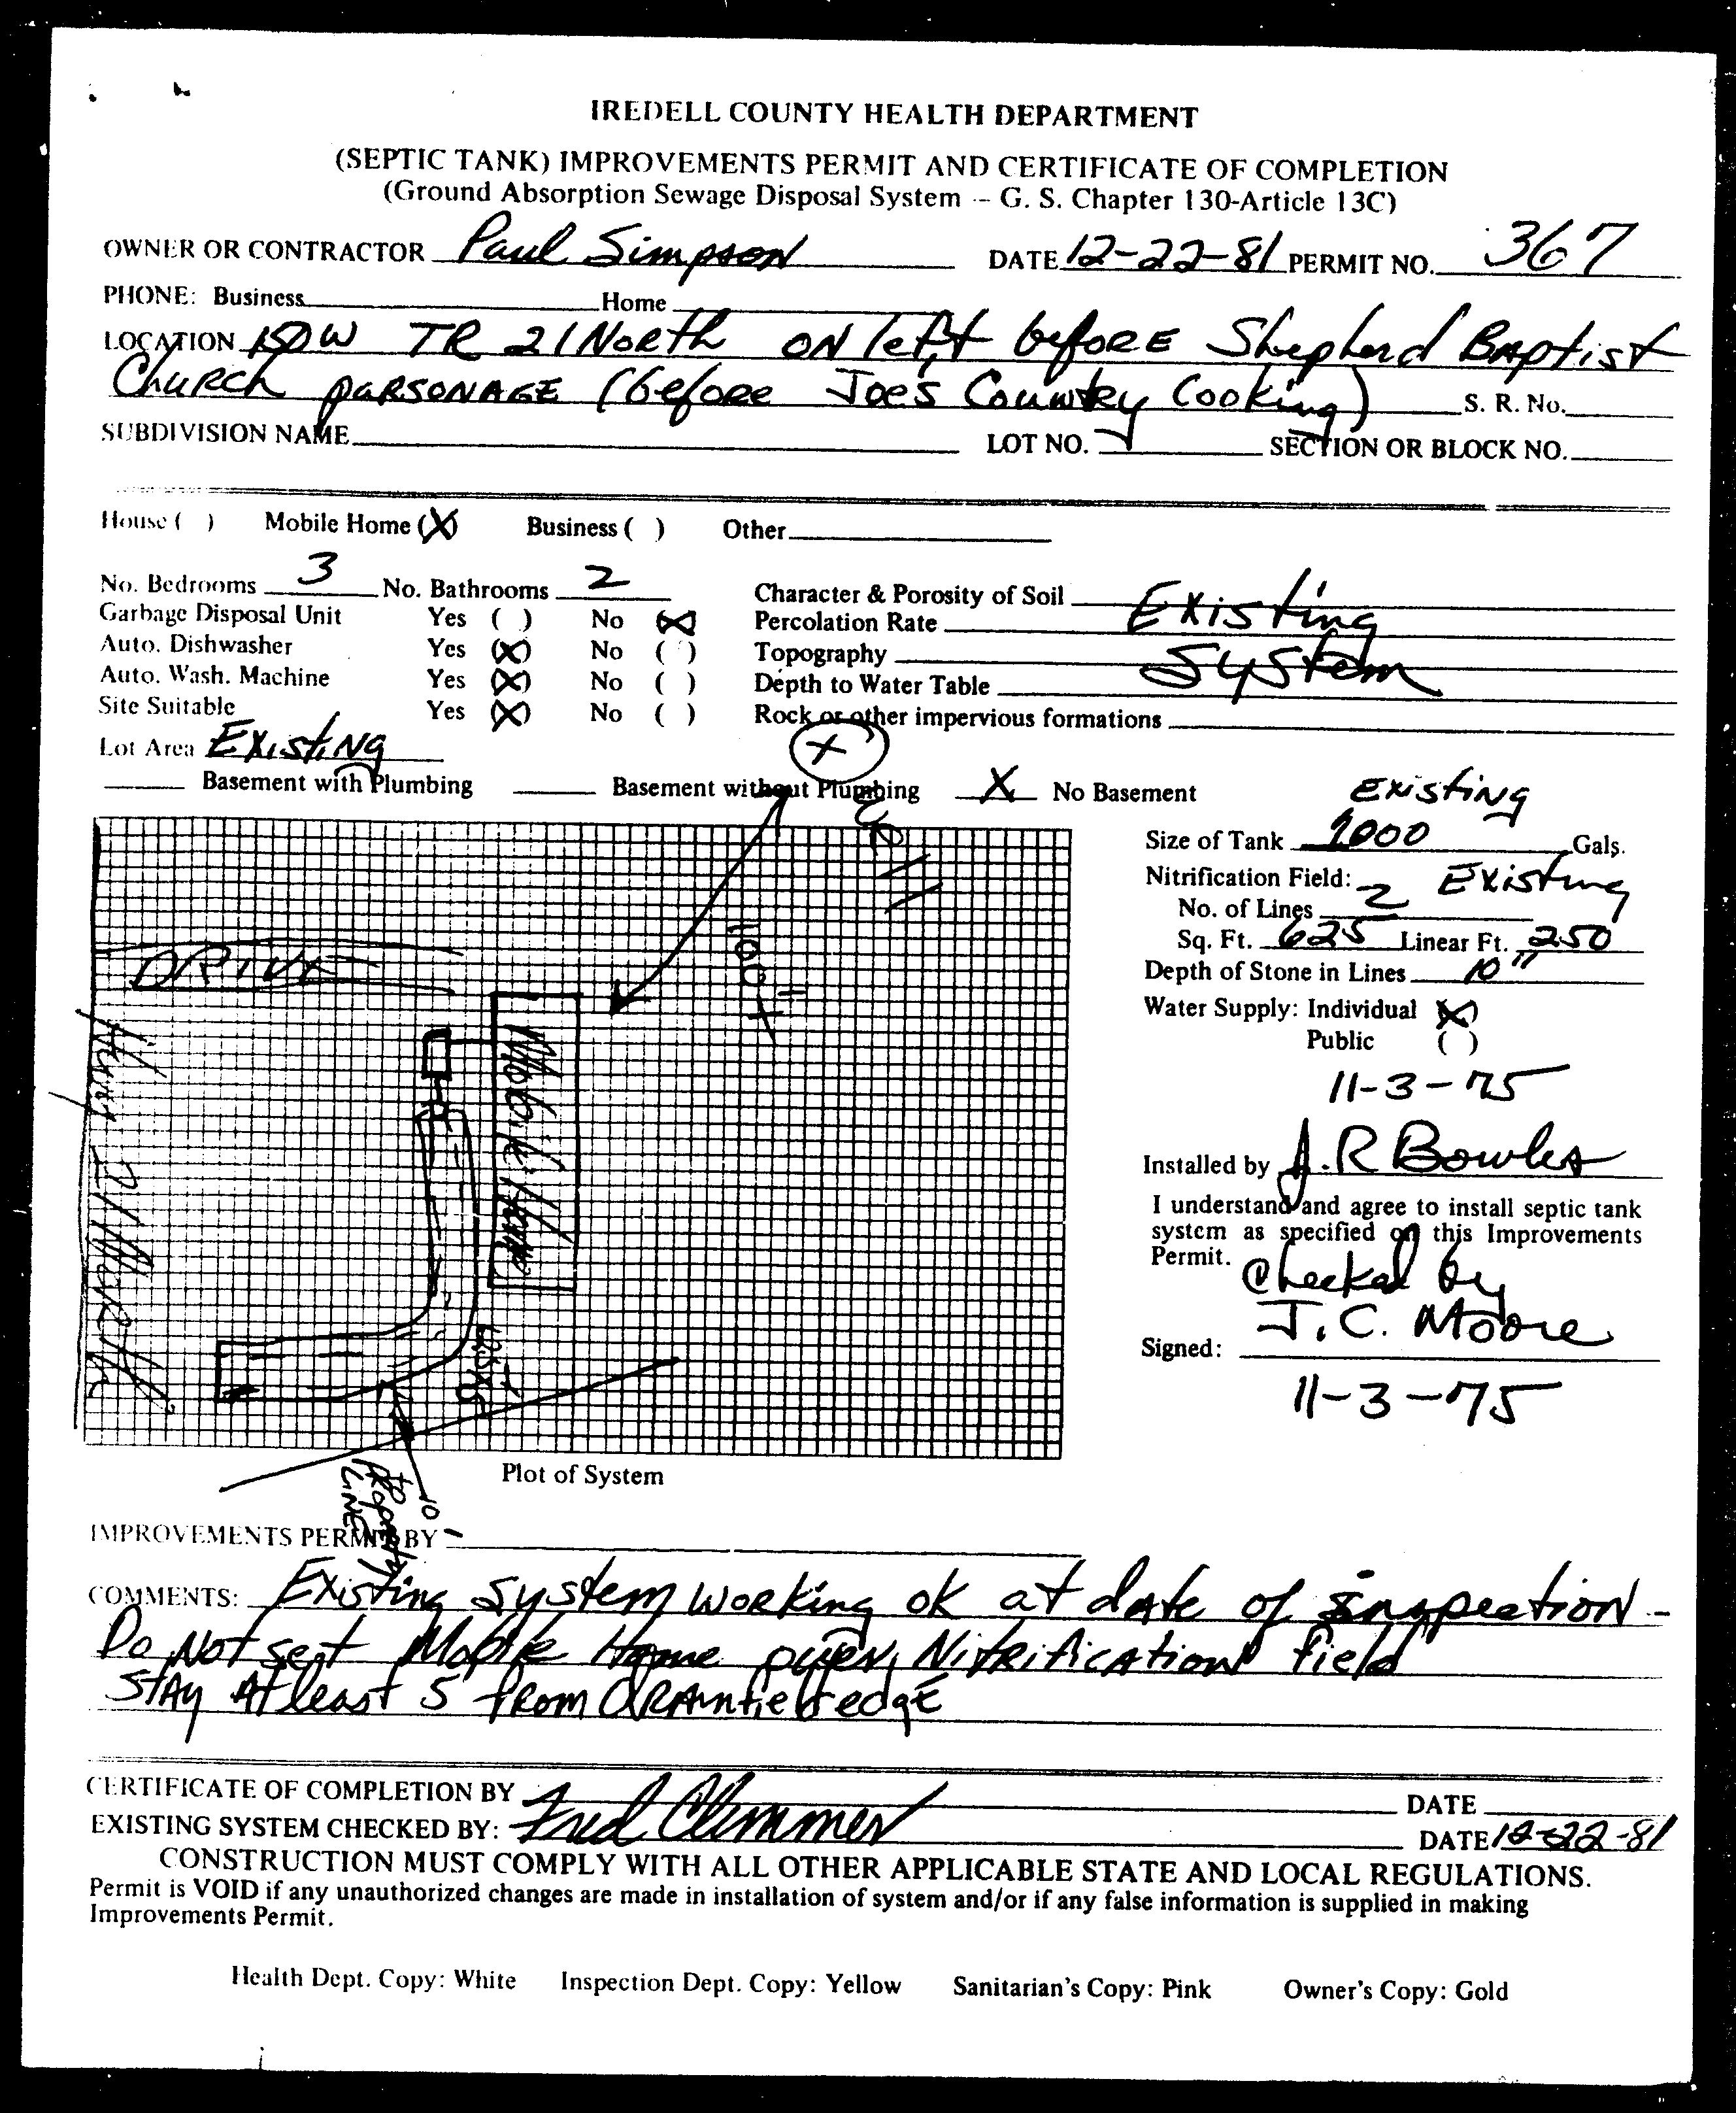 IREDELL COUNTY HEALTH DEPARTMENT
(SEPTIC TANK) IMPROVEMENTS PERMIT AND CERTIFICATE OF COMPLETION
(Ground Absorption Sewage Disposal System -- G. S. Chapter 130-Article 13C)
OWNER OR CONTRACTOR Paul Simpson DATE 12-22-81 PERMIT NO. 367
PHONE: Business Home
LOCATION TR 21 North ON left before Shepherd Baptist
Church parsonage (before Joes Country Cooking) S. R. No.
SUBDIVISION NAME LOT NO. SECTION OR BLOCK NO.
House ( ) Mobile Home (X) Business ( ) Other
No. Bedrooms 3 No. Bathrooms 2 Character & Porosity of Soil Existing
Garbage Disposal Unit Yes ( ) No (X) Percolation Rate
Auto. Dishwasher Yes (X) No ( ) Topography System
Auto. Wash. Machine Yes (X) No ( ) Depth to Water Table
Site Suitable Yes (X) No ( ) Rock or other impervious formations
Lot Area Existing X
Basement with Plumbing Basement without Plumbing X No Basement
Existing
Size of Tank 1000 Gals.
Nitrification Field: Existing
No. of Lines 2
Sq. Ft. 625 Linear Ft. 250
Depth of Stone in Lines 10"
Water Supply: Individual (X)
Public ( )
11-3-75
Installed by J.R Bowles
I understand and agree to install septic tank
system as specified on this Improvements
Permit.
Checked by
J.C. Moore
Signed:
11-3-75
Well
100'+
DRIVE
Mobile Home
Hwy 21 North
10'
to
Property
Line
Plot of System
IMPROVEMENTS PERMIT BY
COMMENTS: Existing system working ok at date of inspection -
Do Not set Mobile Home over Nitrification field
Stay At least 5' from drainfield edge
CERTIFICATE OF COMPLETION BY DATE
EXISTING SYSTEM CHECKED BY: Fred Clemmer DATE 12-22-81
CONSTRUCTION MUST COMPLY WITH ALL OTHER APPLICABLE STATE AND LOCAL REGULATIONS.
Permit is VOID if any unauthorized changes are made in installation of system and/or if any false information is supplied in making
Improvements Permit.
Health Dept. Copy: White Inspection Dept. Copy: Yellow Sanitarian's Copy: Pink Owner's Copy: Gold